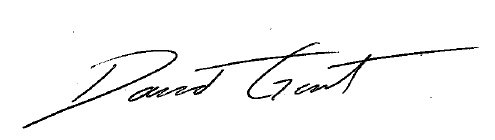 David Gent